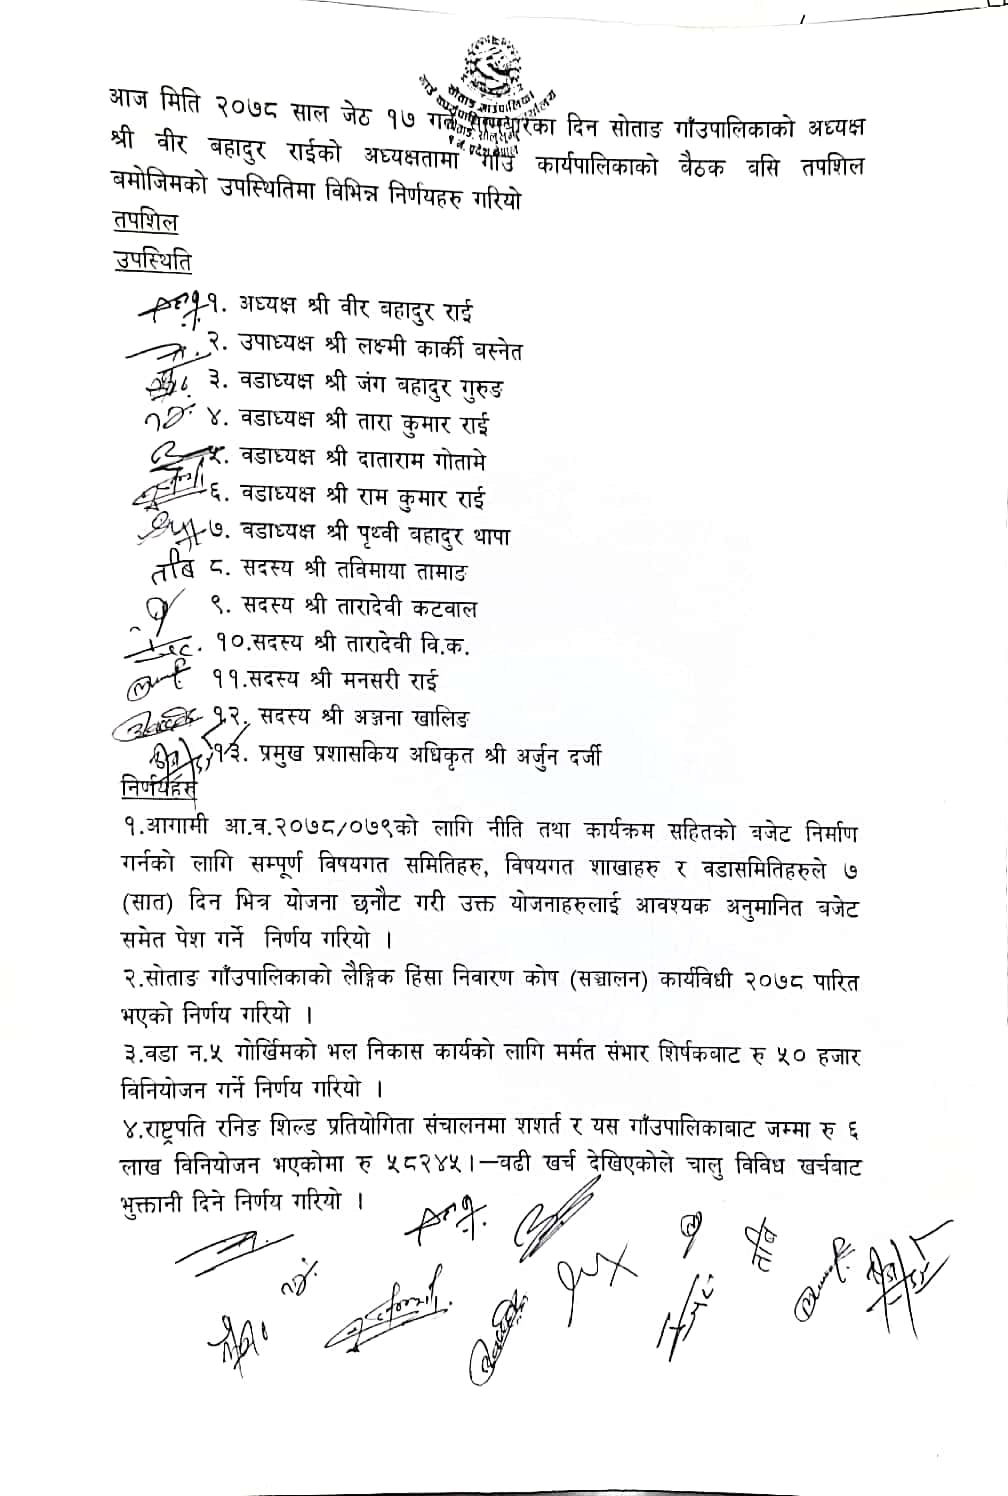 सोताङ गाउँपालिका
आज मिति २०७८ साल जेठ १७ गते दिन सोताङ गाँउपालिकाको अध्यक्ष
श्री वीर बहादुर राईको अध्यक्षतामा गाँउ कार्यपालिकाको बैठक बसि तपशिल
बमोजिमको उपस्थितिमा विभिन्न निर्णयहरु गरियो
तपशिल
उपस्थिति
१. अध्यक्ष श्री वीर बहादुर राई
२. उपाध्यक्ष श्री लक्ष्मी कार्की बस्नेत
३. वडाध्यक्ष श्री जंग बहादुर गुरुङ
४. वडाध्यक्ष श्री तारा कुमार राई
५. वडाध्यक्ष श्री दाताराम गोतामे
६. वडाध्यक्ष श्री राम कुमार राई
७. वडाध्यक्ष श्री पृथ्वी बहादुर थापा
८. सदस्य श्री तविमाया तामाङ
९. सदस्य श्री तारादेवी कटवाल
१०.सदस्य श्री तारादेवी वि.क.
११.सदस्य श्री मनसरी राई
१२. सदस्य श्री अञ्जना खालिङ
१३. प्रमुख प्रशासकिय अधिकृत श्री अर्जुन दर्जी
निर्णयहरु
१.आगामी आ.व.२०७८/०७९को लागि नीति तथा कार्यक्रम सहितको बजेट निर्माण
गर्नको लागि सम्पूर्ण विषयगत समितिहरु, विषयगत शाखाहरु र वडासमितिहरुले ७
(सात) दिन भित्र योजना छनौट गरी उक्त योजनाहरुलाई आवश्यक अनुमानित बजेट
समेत पेश गर्ने निर्णय गरियो ।
२.सोताङ गाँउपालिकाको लैङ्गिक हिंसा निवारण कोष (सञ्चालन) कार्यविधी २०७८ पारित
भएको निर्णय गरियो ।
३.वडा न.५ गोर्खिमको भल निकास कार्यको लागि मर्मत संभार शिर्षकबाट रु ५० हजार
विनियोजन गर्ने निर्णय गरियो ।
४.राष्ट्रपति रनिङ शिल्ड प्रतियोगिता संचालनमा शशर्त र यस गाँउपालिकाबाट जम्मा रु ६
लाख विनियोजन भएकोमा रु ५८२४५।–बढी खर्च देखिएकोले चालु विविध खर्चबाट
भुक्तानी दिने निर्णय गरियो ।